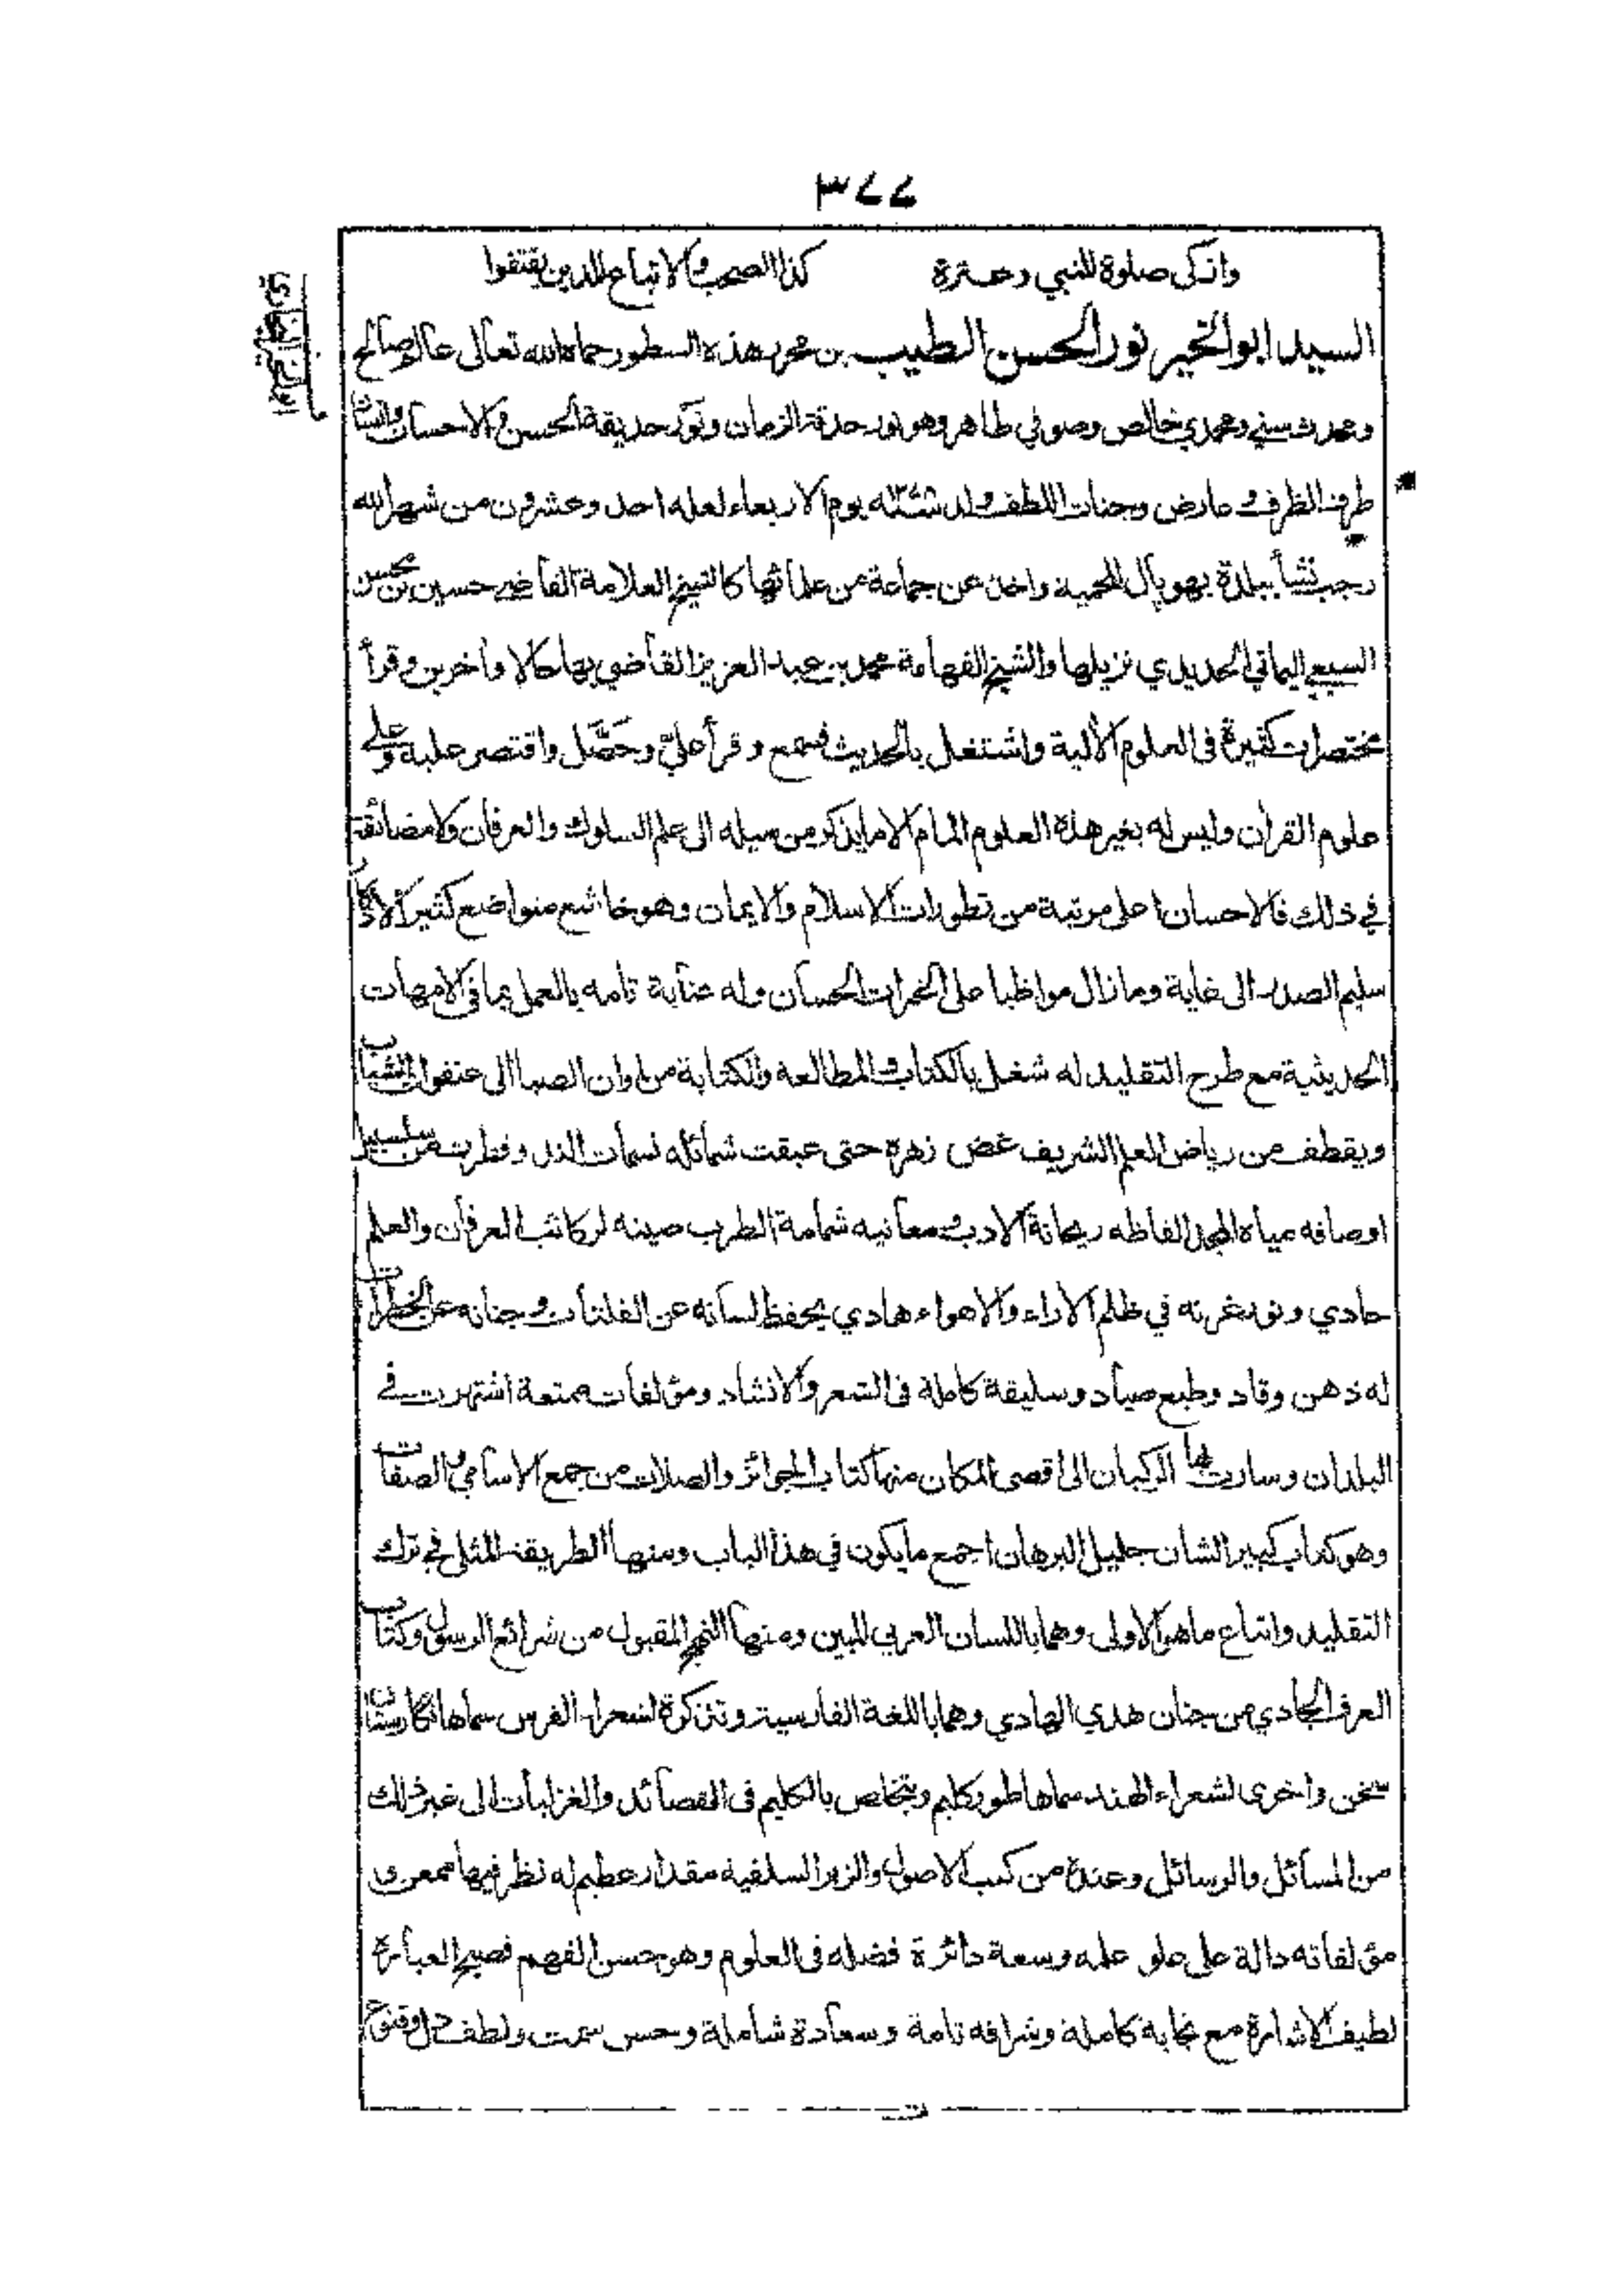 ٣٧٧
وازكى صلوة للنبي وعترة كذا الصحب والاتباع للدين يقتفوا
السيد ابو الخير نور الحسن الطيب بن محرر هذه السطور حماه الله تعالى عالم صالح
ومحدث سني ومحمدي خالص وصوفي طاهر وهو نور حدقة الزمان ونور حديقة الحسن والاحسان وانسان
طرف الظرف وعارض وجنات اللطف ولد يوم الاربعاء لعله احد وعشرون من شهر الله
رجب نشأ ببلدة بهوپال المحمية واخذ عن جماعة من علمائها كالشيخ العلامة القاضي حسين بن محسن
السبيعي اليماني الحديدي نزيلها والشيخ الفهامة محمد بن عبد العزيز القاضي بها حالا وآخرين وقرأ
مختصرات كثيرة في العلوم الآلية واشتغل بالحديث فسمع وقرأ عليّ وحَصَّل واقتصر عليه وعلى
علوم القران وليس له بغير هذه العلوم المام الا ما يذكر من ميله الى علم السلوك والعرفان ولا مضائقة
في ذلك فالاحسان اعلى مرتبة من تطورات الاسلام والايمان وهو خاشع متواضع كثير الاذكار
سليم الصدر الى غاية وما زال مواظبا على الخيرات الحسان وله عناية تامه بالعمل بما في الامهات
الحديثية مع طرح التقليد له شغل بالكتاب والمطالعة والكتابة من اوان الصبا الى عنفوان الشباب
ويقطف من رياض العلم الشريف غض زهره حتى عبقت شمائله نسمات الند وقطرت من سلسبيل
اوصافه مياه المجد الفاظه ريحانة الادب ومعانيه شمامة الطرب صيته لركائب العرفان والعلم
حادي ونور غرته في ظلم الاراء والاهواء هادي يحفظ لسانه عن الفلتات وجنانه عن الخطرات
له ذهن وقاد وطبع صياد وسليقة كاملة في الشعر والانشاد ومؤلفات ممتعة اشتهرت في
البلدان وسارت بها الركبان الى اقصى المكان منها كتاب الجوائز والصلات من جمع الاسامي والصفات
وهو كتاب كبير الشان جليل البرهان اجمع ما يكون في هذا الباب ومنها الطريقة المثلى في ترك
التقليد واتباع ما هو الاولى وهما باللسان العربي المبين ومنها النهج المقبول من شرائع الرسول وكتاب
العرف الجادي من جنان هدي الهادي وهما باللغة الفارسية وتذكرة لشعراء الفرس سماها نگارستان
سخن واخرى لشعراء الهند سماها طور كليم ويتخلص بالكليم في القصائد والغزليات الى غير ذلك
من المسائل والرسائل وعنده من كتب الاصول والزبر السلفية مقدار عظيم له نظر فيها ممعن و
مؤلفاته دالة على علو علمه وسعة دائرة فضله في العلوم وهو حسن الفهم فصيح العبارة
لطيف الاشارة مع نجابة كاملة وشرافه تامة وسعادة شاملة وحسن سمت ولطف